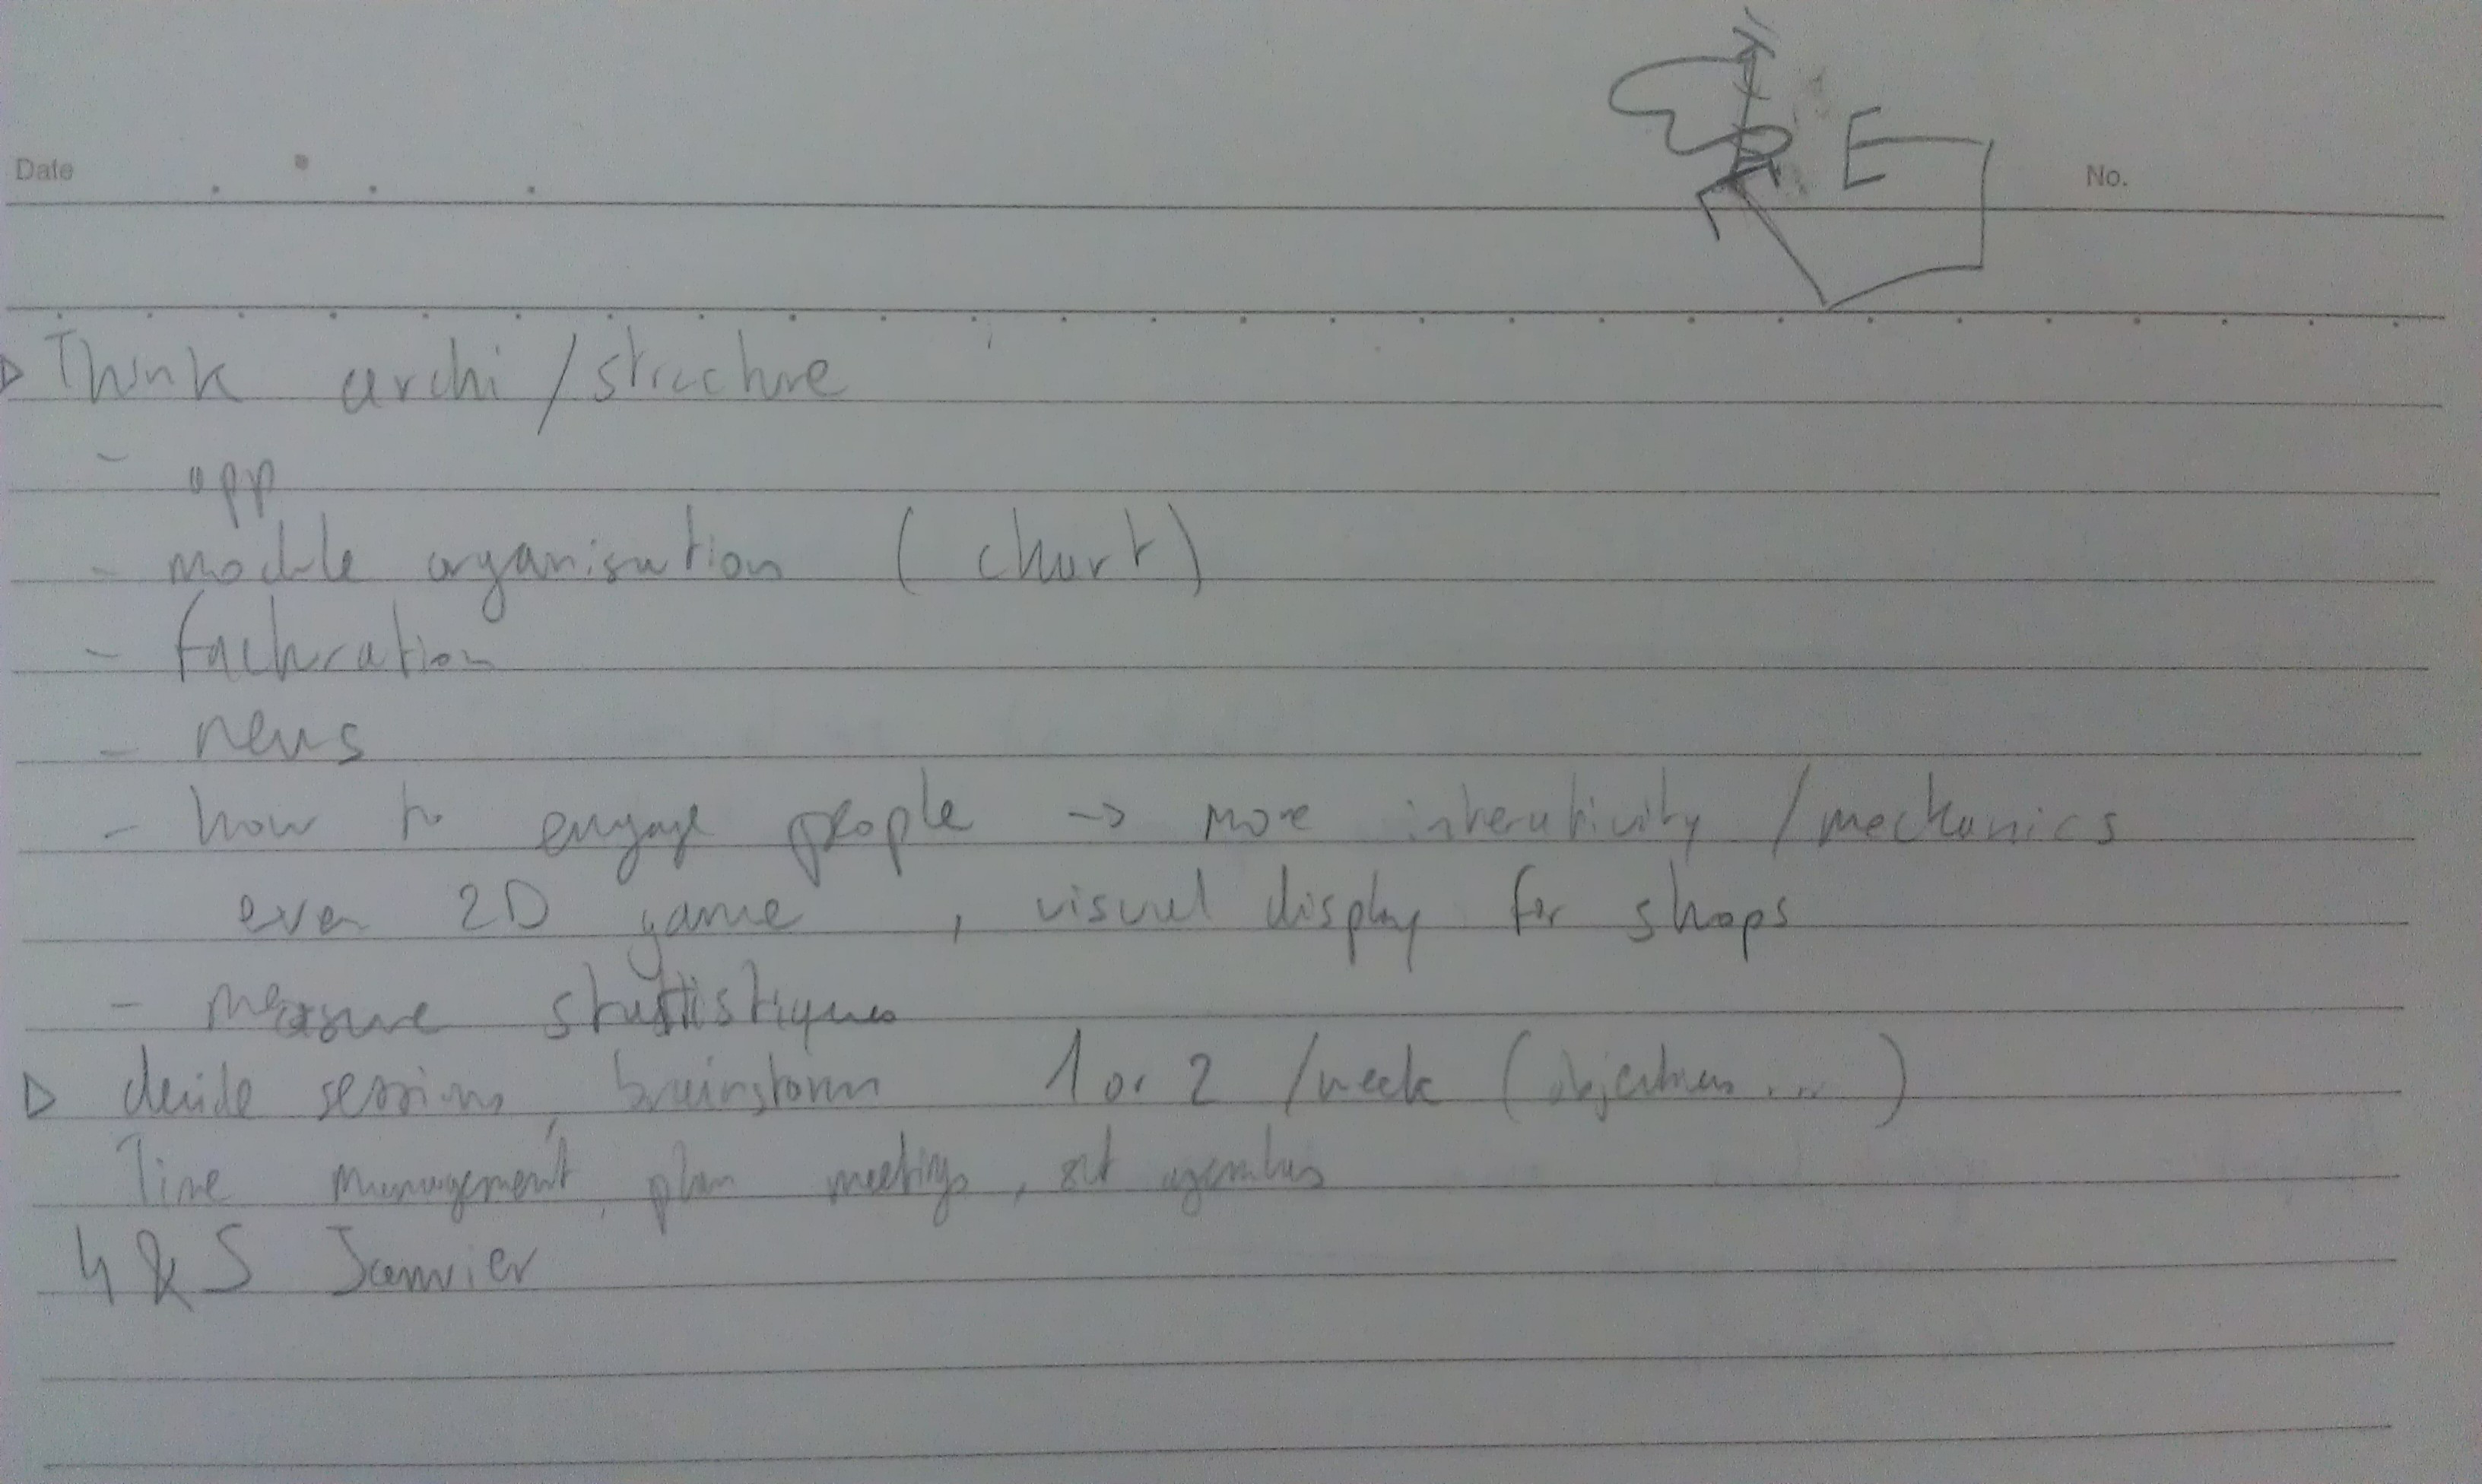 Date
E
No.
Think archi / structure
- app
- module organisation (chart)
- facturation
- news
- how to engage people -> more interativity / mechanics
even 2D game , visual display for shops
- measure statistiques
decide sessions, brainstorm 1 or 2 / week (objectives ...)
Time management, plan meetings, set agendas
4 & 5 Janvier